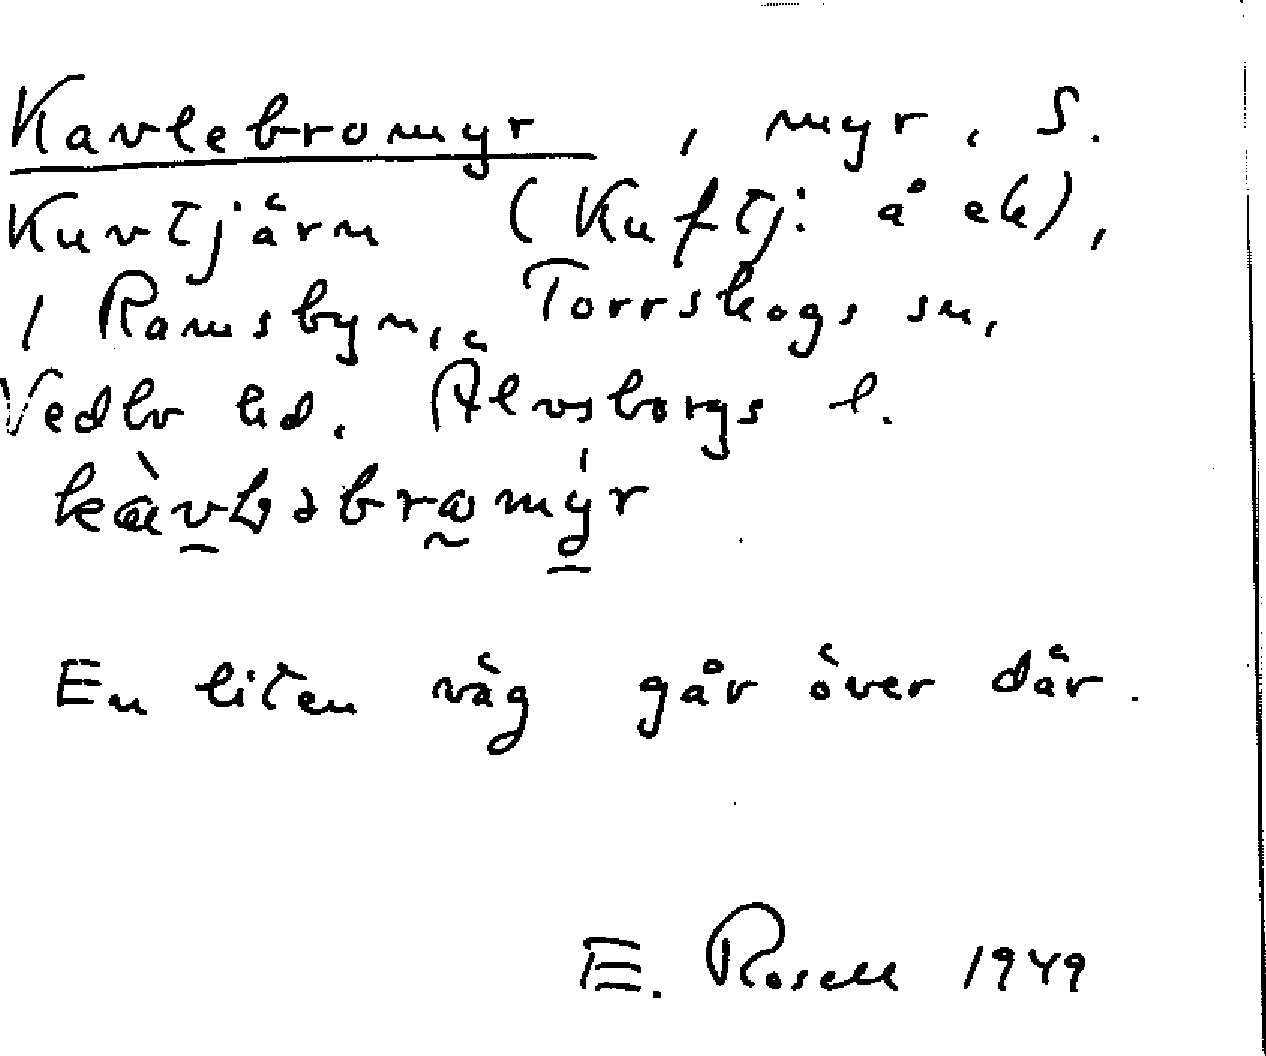 Kavlebromyr, myr, S.
Kuvtjärn (Kuftj: å ek),
i Ramsbyn, Torrskogs sn,
Vedbo hd. Älvsborgs l.
En liten väg går över där.
E. Rosell 1949